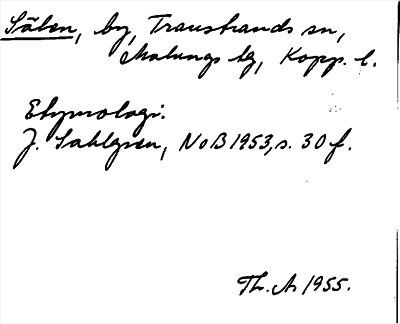 Sälen, by, Transtrands sn,
Malungs tg, Kopp. l.
Etymologi.
J. Sahlgren, NoB 1953, s. 30 f.
Th. A. 1955.